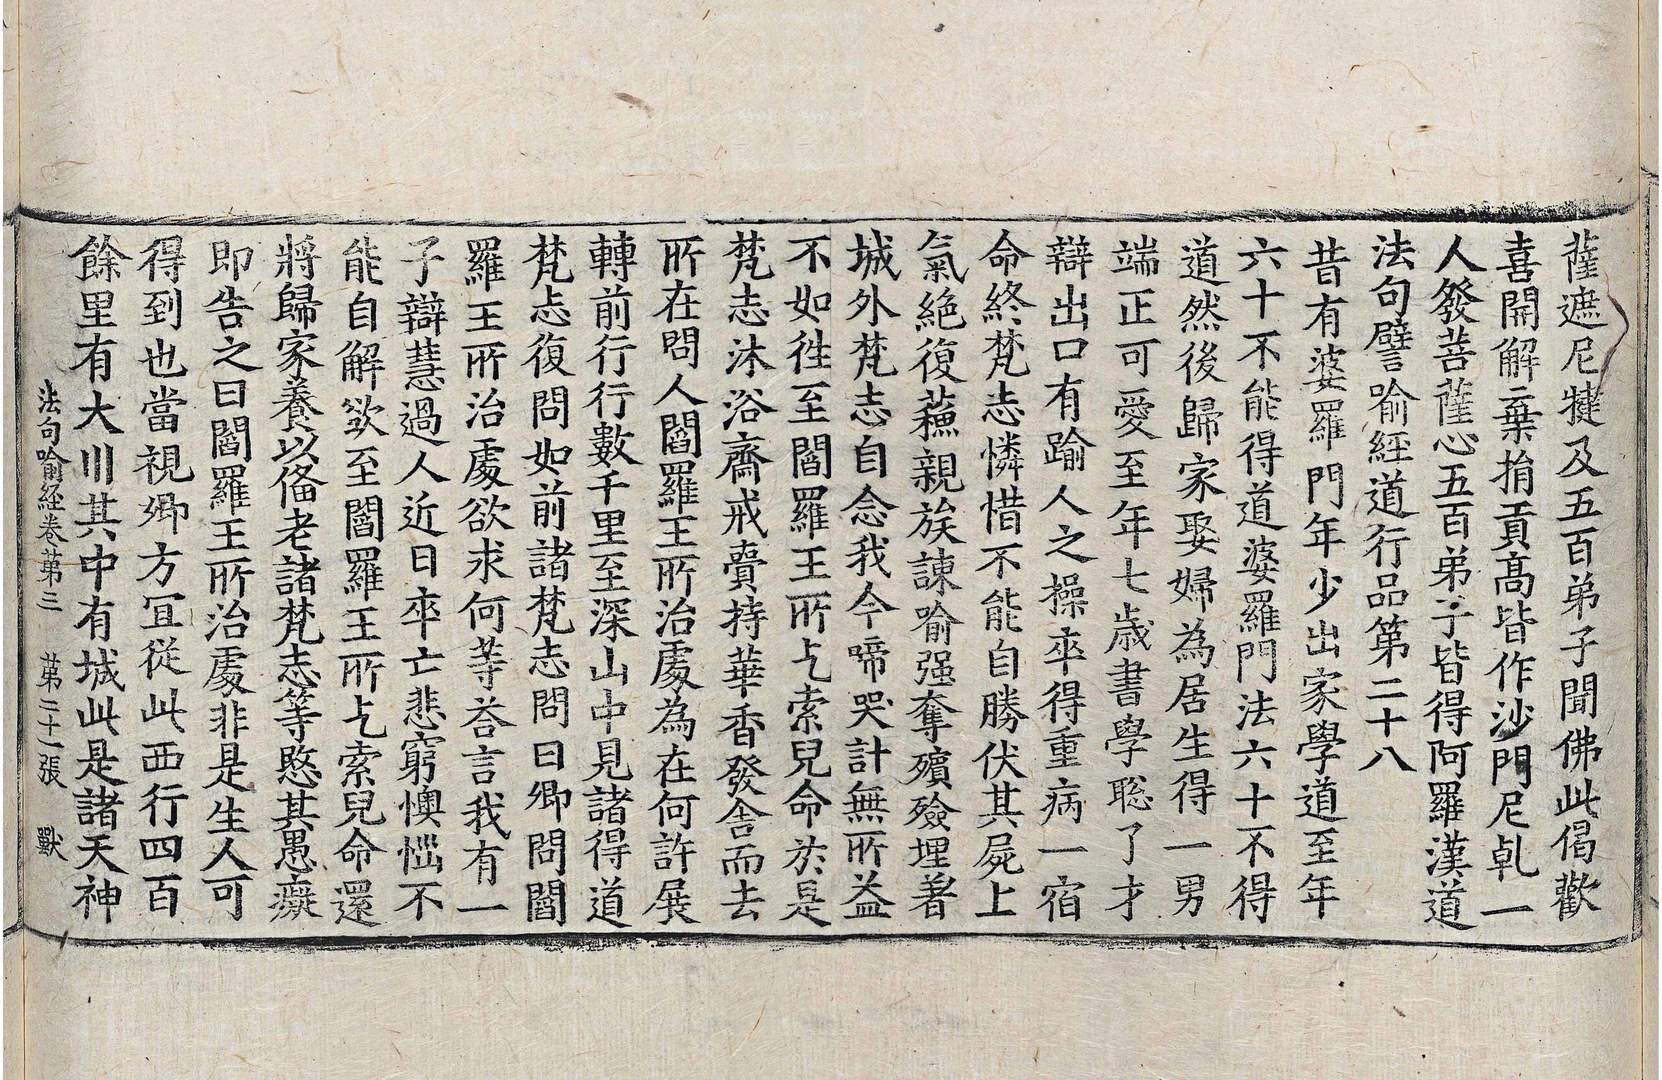 薩遮尼犍及五百弟子聞佛此偈歡
喜開解棄捐貢高皆作沙門尼乹一
人發菩薩心五百弟子皆得阿羅漢道
法句譬喻經道行品第二十八
昔有婆羅門年少出家學道至年
六十不能得道婆羅門法六十不得
道然後歸家娶婦為居生得一男
端正可愛至年七歲書學聡了才
辯出口有踰人之操卒得重病一宿
命終梵志憐惜不能自勝伏其屍上
氣絕復蘇親族諫喻强奪殯殮埋著
城外梵志自念我今啼哭計無所益
不如徃至閻羅王所乞索兒命於是
梵志沐浴齋戒賷持華香發舍而去
所在問人閻羅王所治處為在何許展
轉前行行數千里至深山中見諸得道
梵志復問如前諸梵志問曰卿問閻
羅王所治處欲求何等荅言我有一
子辯慧過人近日卒亡悲窮懊惱不
能自解欲至閻羅王所乞索兒命還
將歸家養以俻老諸梵志等愍其愚癡
即告之曰閻羅王所治處非是生人可
得到也當視卿方冝從此西行四百
餘里有大川其中有城此是諸天神
法句喻経卷苐三 苐二十一張 獸